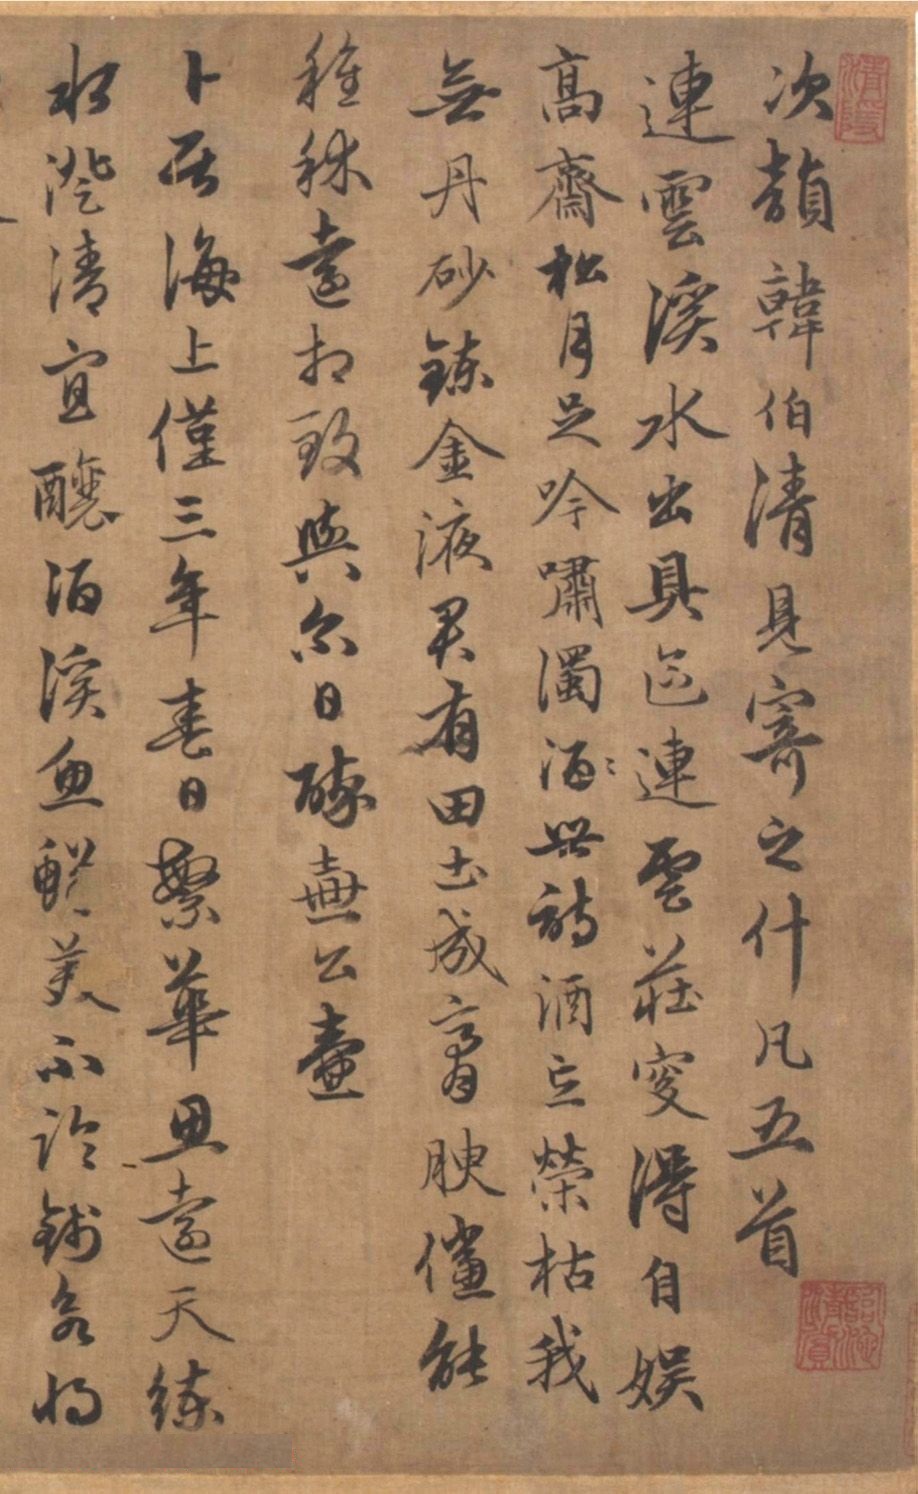 次韻韓伯清見寄之什凡五首
連雲溪水出具區連雲莊夐得自娛
高齋松月足吟嘯濁酒世詩酒忘榮枯我
無丹砂錬金液君有田土成膏腴儻能
種秫遠相致與尔日醉壺公壺
卜居海上僅三年春日繁華思遠天練
水澄清宜釀酒溪魚鮮美不論錢客將